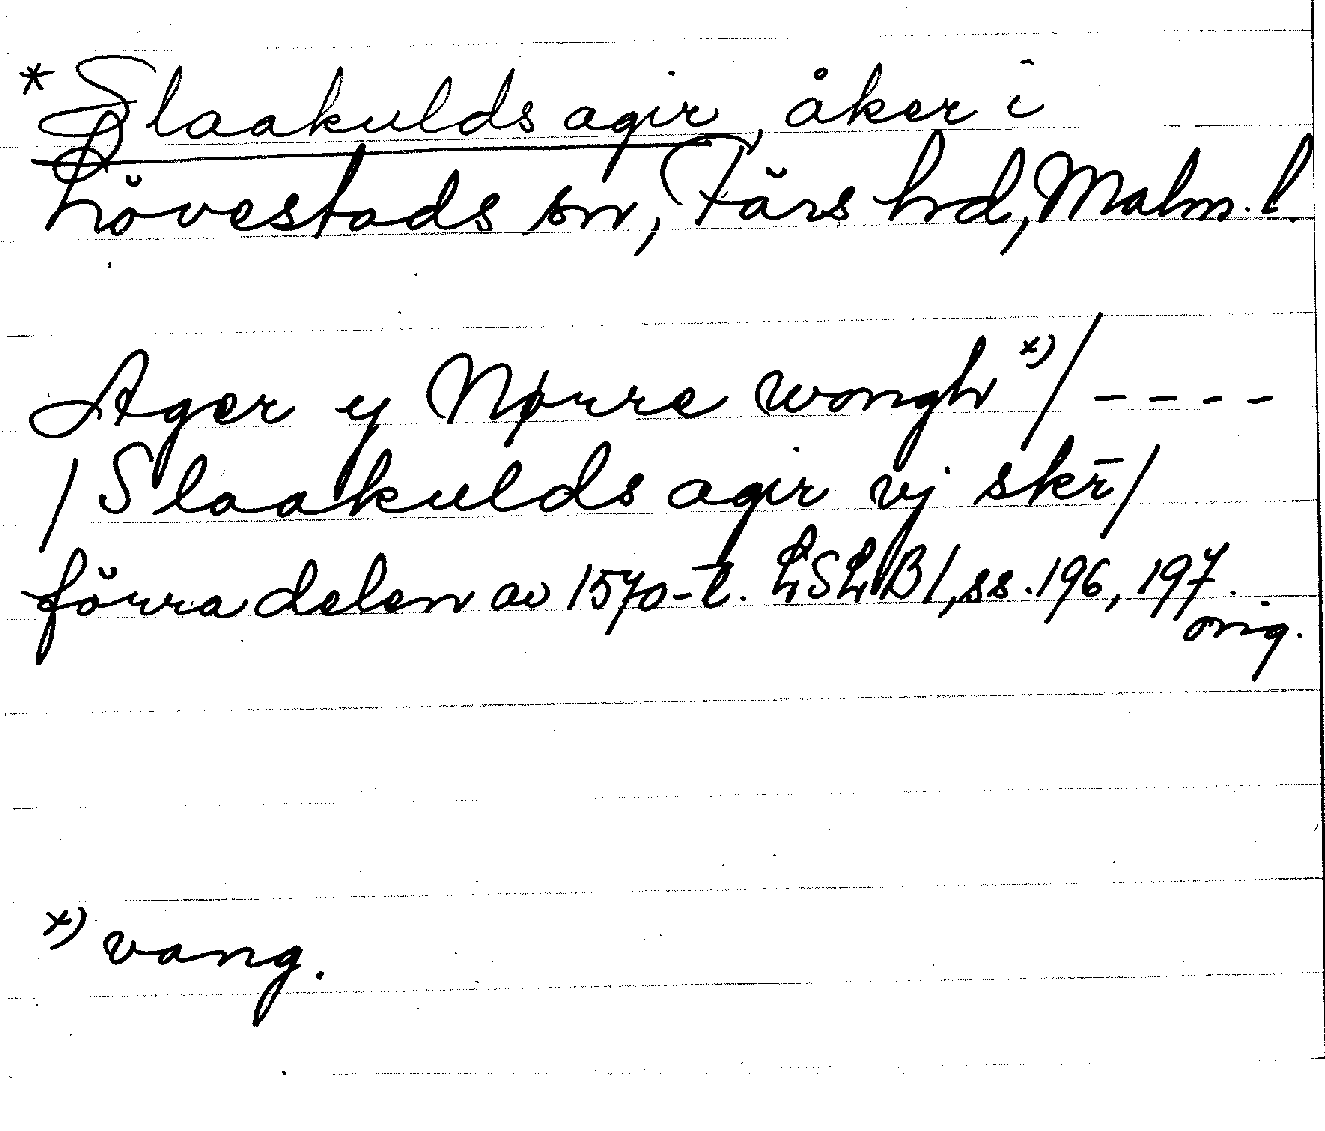 * Slaakulds agir, åker i
Lövestads sn, Färs hd, Malm. l.
Ager y Nørre wongh x) / - - - -
/ Slaakulds agir vj skr̄ /
förra delen av 1570-t. LSLB 1, ss. 196, 197.
orig.
x) vang.